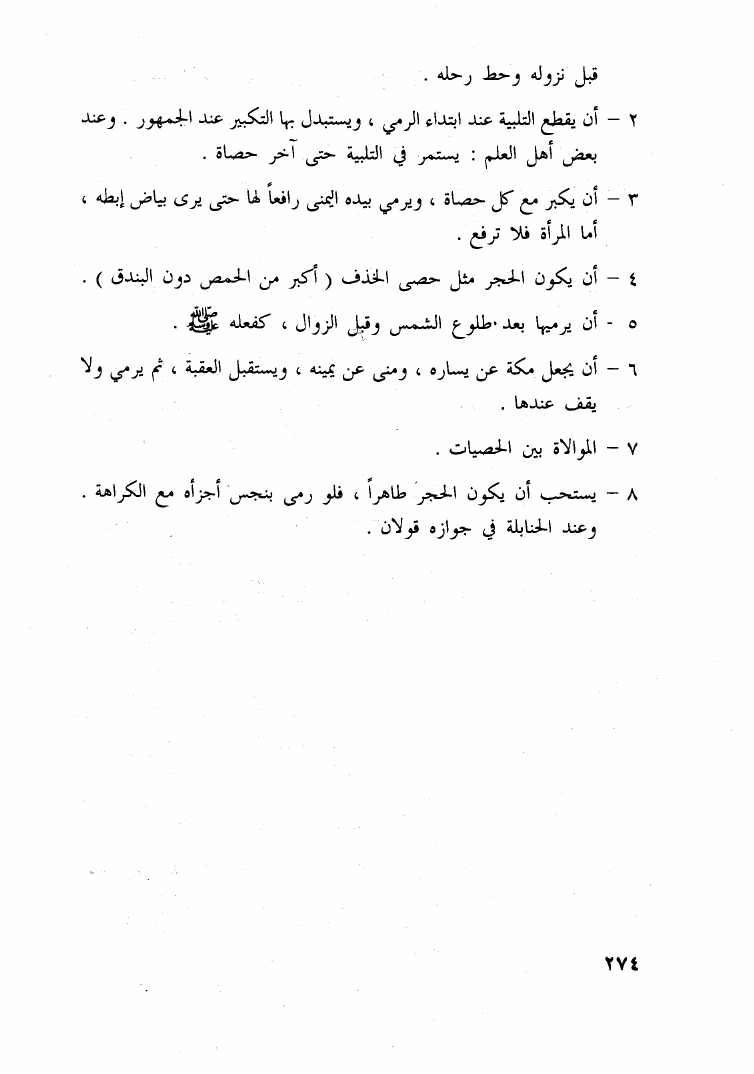 قبل نزوله وحط رحله .
٢ – أن يقطع التلبية عند ابتداء الرمي ، ويستبدل بها التكبير عند الجمهور . وعند
بعض أهل العلم : يستمر في التلبية حتى آخر حصاة .
٣ – أن يكبر مع كل حصاة ، ويرمي بيده اليمنى رافعاً لها حتى يرى بياض إبطه ،
أما المرأة فلا ترفع .
٤ – أن يكون الحجر مثل حصى الخذف ( أكبر من الحمص دون البندق ) .
٥ - أن يرميها بعد طلوع الشمس وقبل الزوال ، كفعله ﷺ .
٦ – أن يجعل مكة عن يساره ، ومنى عن يمينه ، ويستقبل العقبة ، ثم يرمي ولا
يقف عندها .
٧ – الموالاة بين الحصيات .
٨ – يستحب أن يكون الحجر طاهراً ، فلو رمى بنجس أجزأه مع الكراهة .
وعند الحنابلة في جوازه قولان .
٢٧٤